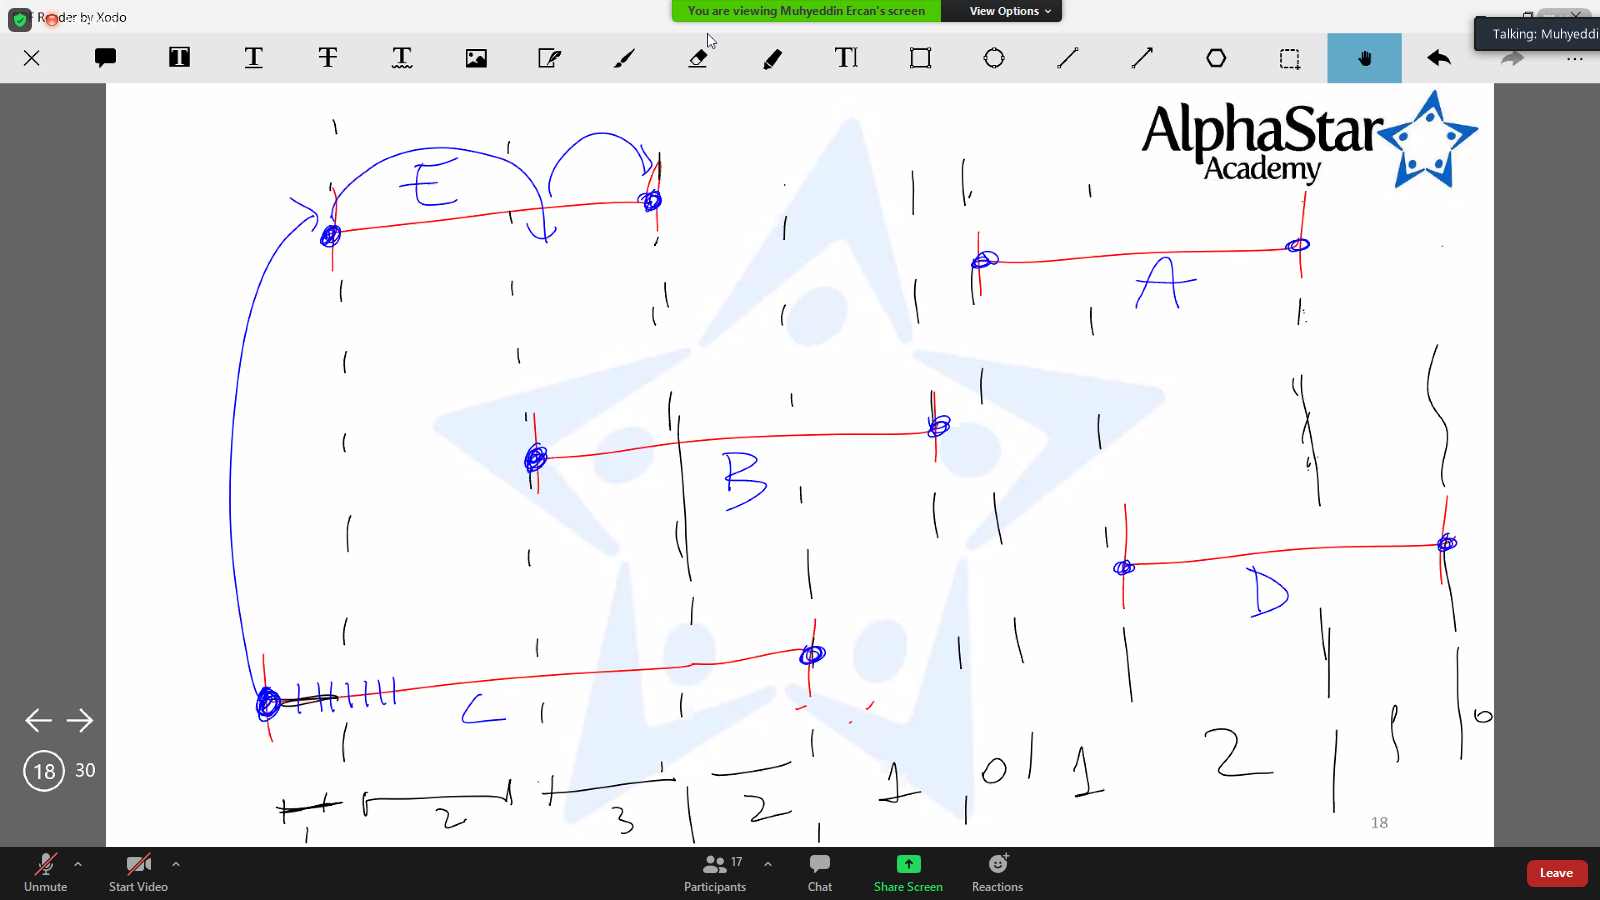 PDF Render by Xodo
You are viewing Muhyeddin Ercan's screen
View Options
Talking: Muhyeddi
T
T
T
T
TI
AlphaStar
Academy
E
A
B
D
C
18 30
1 2 3 2 1 0 1 2 1 0
18
Unmute
Start Video
Participants
17
Chat
Share Screen
Reactions
Leave